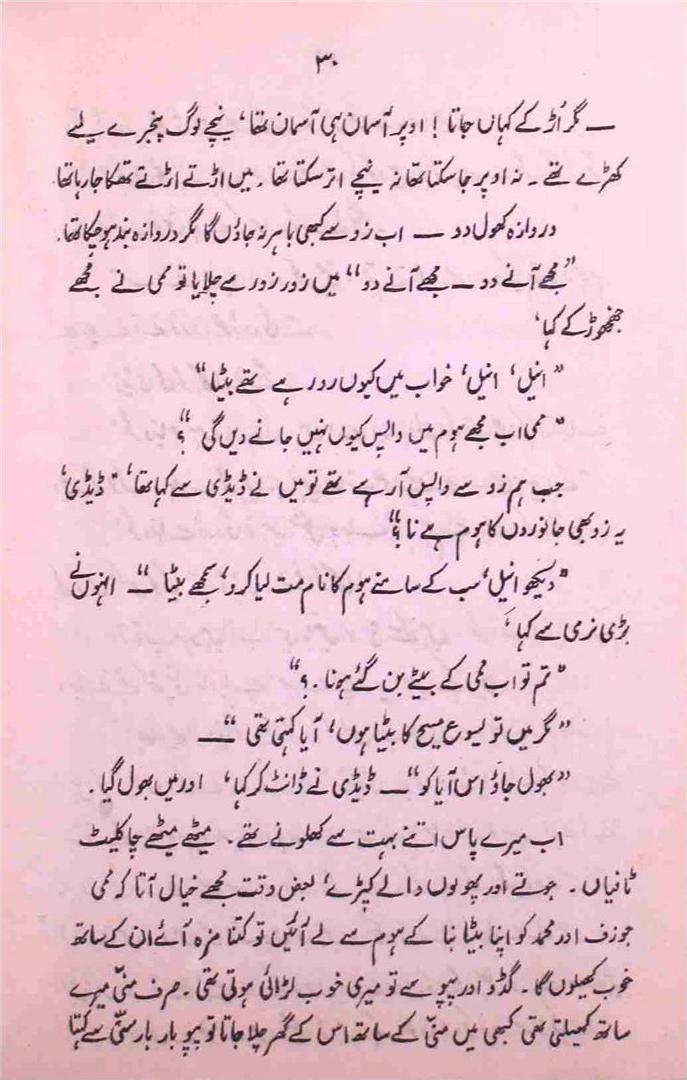 ۳۰
— مگر اُڑ کے کہاں جاتا ! اوپر آسمان ہی آسمان تھا، نیچے لوگ پنجرے لیے
کھڑے تھے ۔ نہ اوپر جا سکتا تھا نہ نیچے اتر سکتا تھا ۔ میں اڑتے اڑتے تھکا جا رہا تھا
دروازہ کھول دو — اب زو سے کبھی باہر نہ جاؤں گا مگر دروازہ بند ہو چکا تھا ۔
”مجھے آنے دو — مجھے آنے دو“ میں زور زور سے چلایا تو ممی نے مجھے
جھنجھوڑ کے کہا ،
”انیل ، انیل ، خواب میں کیوں رو رہے تھے بیٹا“
”ممی اب مجھے ہوم میں واپس کیوں نہیں جانے دیں گی ؟“
جب ہم زو سے واپس آ رہے تھے تو میں نے ڈیڈی سے کہا تھا ، ”ڈیڈی ،
یہ زو بھی جانوروں کا ہوم ہے نا ؟“
”دیکھو انیل ، سب کے سامنے ہوم کا نام مت لیا کرو ، سمجھے بیٹا“ — انہوں نے
بڑی نرمی سے کہا ،
”تم تو اب ممی کے بیٹے بن گئے ہو نا ۔ ؟“
”مگر میں تو یسوع مسیح کا بیٹا ہوں ، آیا کہتی تھی“ —
”بھول جاؤ اس آیا کو“ — ڈیڈی نے ڈانٹ کر کہا ، اور میں بھول گیا ۔
اب میرے پاس اتنے بہت سے کھلونے تھے ۔ میٹھے میٹھے چاکلیٹ
ٹافیاں ۔ جوتے اور پھولوں والے کپڑے ، بعض وقت مجھے خیال آتا کہ ممی
جوزف اور محمد کو اپنا بیٹا بنا کے ہوم سے لے آئیں تو کتنا مزہ آئے ان کے ساتھ
خوب کھیلوں گا ۔ گڈو اور پپو سے تو میری خوب لڑائی ہوتی تھی ۔ صرف منّی میرے
ساتھ کھیلتی تھی کبھی میں منّی کے ساتھ اس کے گھر چلا جاتا تو پپو بار بار منّی سے کہتا